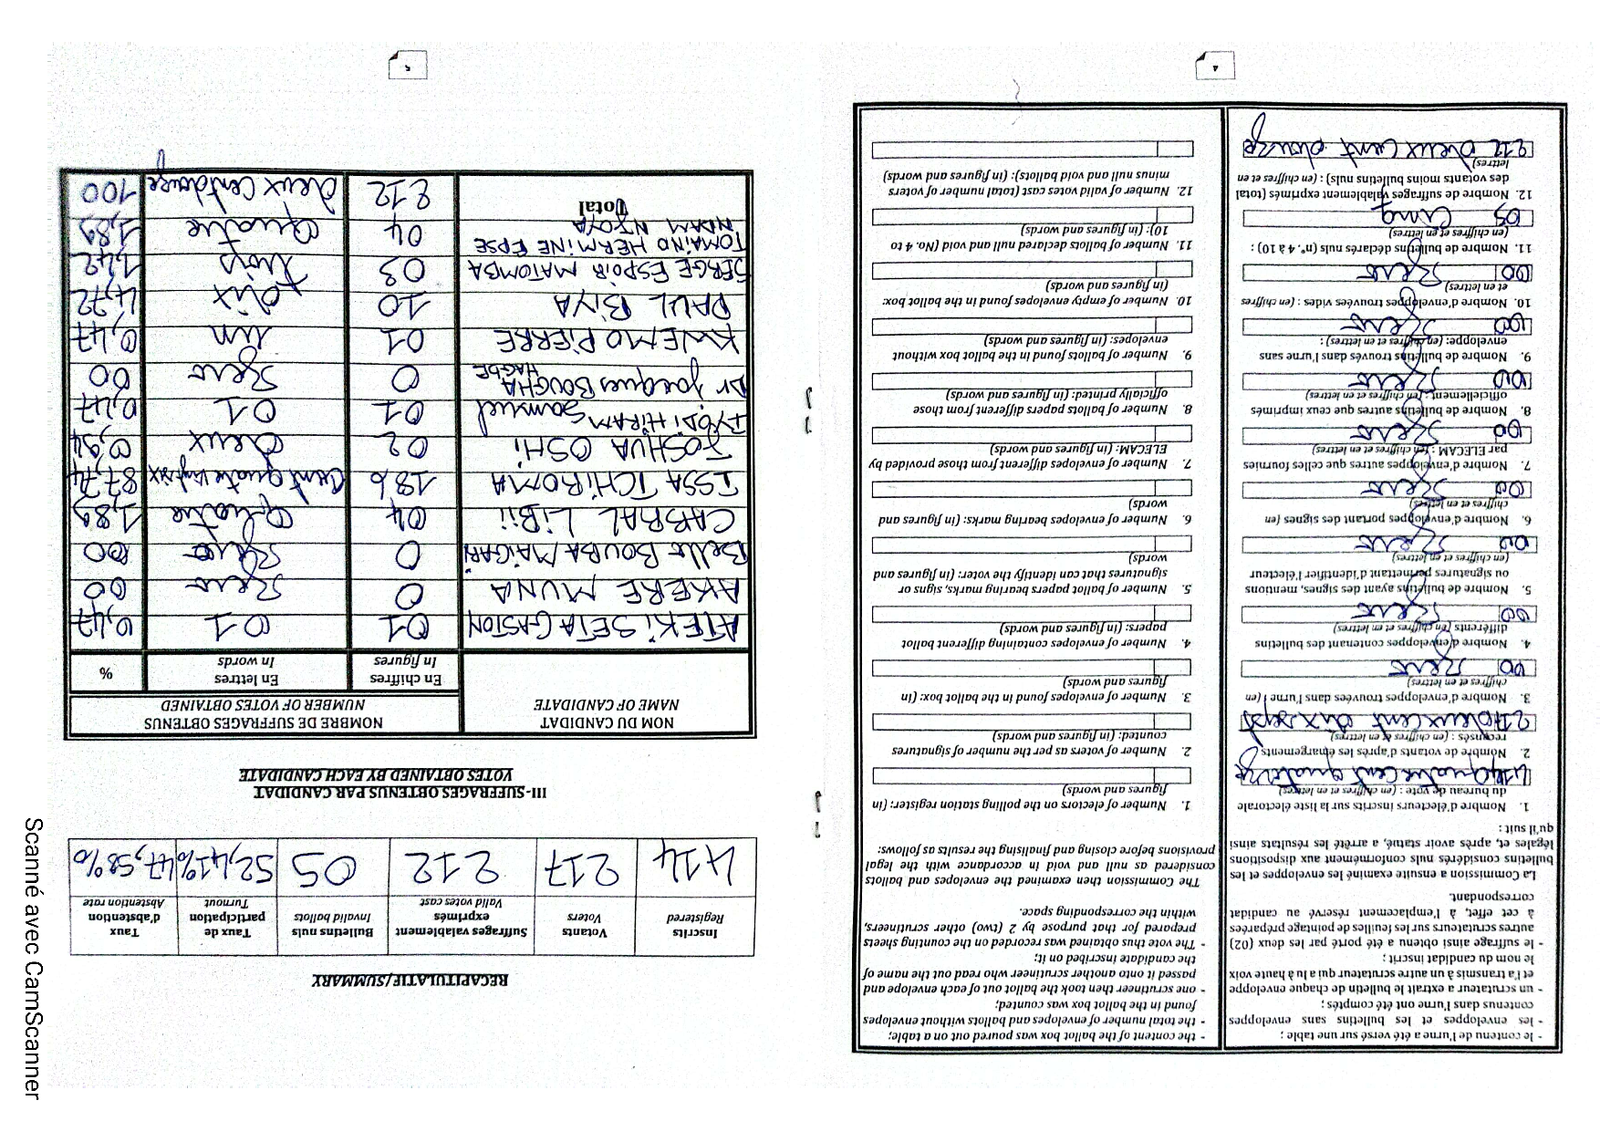 - le contenu de l'urne a été versé sur une table ;
- les enveloppes et les bulletins sans enveloppes
contenus dans l'urne ont été comptés ;
- un scrutateur a extrait le bulletin de chaque enveloppe
et l'a transmis à un autre scrutateur qui a lu à haute voix
le nom du candidat inscrit ;
- le suffrage ainsi obtenu a été porté par les deux (02)
autres scrutateurs sur les feuilles de pointage préparées
à cet effet, à l'emplacement réservé au candidat
correspondant.
La Commission a ensuite examiné les enveloppes et les
bulletins considérés nuls conformément aux dispositions
légales et, après avoir statué, a arrêté les résultats ainsi
qu'il suit :
1. Nombre d'électeurs inscrits sur la liste électorale
du bureau de vote : (en chiffres et en lettres)
414 quatre cent quatorze
2. Nombre de votants d'après les émargements
recensés : (en chiffres et en lettres)
217 deux cent dix sept
3. Nombre d'enveloppes trouvées dans l'urne : (en
chiffres et en lettres)
00 Zero
4. Nombre d'enveloppes contenant des bulletins
différents (en chiffres et en lettres)
00 Zero
5. Nombre de bulletins ayant des signes, mentions
ou signatures permettant d'identifier l'électeur
(en chiffres et en lettres)
00 Zero
6. Nombre d'enveloppes portant des signes (en
chiffres et en lettres)
00 Zero
7. Nombre d'enveloppes autres que celles fournies
par ELECAM : (en chiffres et en lettres)
00 Zero
8. Nombre de bulletins autres que ceux imprimés
officiellement : (en chiffres et en lettres)
00 Zero
9. Nombre de bulletins trouvés dans l'urne sans
enveloppe: (en chiffres et en lettres) :
00 Zero
10. Nombre d'enveloppes trouvées vides : (en chiffres
et en lettres)
00 Zero
11. Nombre de bulletins déclarés nuls (n°. 4 à 10) :
(en chiffres et en lettres)
05 Cinq
12. Nombre de suffrages valablement exprimés (total
des votants moins bulletins nuls) : (en chiffres et en
lettres)
212 deux cent douze
- the content of the ballot box was poured out on a table;
- the total number of envelopes and ballots without envelopes
found in the ballot box was counted;
- one scrutineer then took the ballot out of each envelope and
passed it onto another scrutineer who read out the name of
the candidate inscribed on it;
- The vote thus obtained was recorded on the counting sheets
prepared for that purpose by 2 (two) other scrutineers,
within the corresponding space.
The Commission then examined the envelopes and ballots
considered as null and void in accordance with the legal
provisions before closing and finalising the results as follows:
1. Number of electors on the polling station register: (in
figures and words)
2. Number of voters as per the number of signatures
counted: (in figures and words)
3. Number of envelopes found in the ballot box: (in
figures and words)
4. Number of envelopes containing different ballot
papers: (in figures and words)
5. Number of ballot papers bearing marks, signs or
signatures that can identify the voter: (in figures and
words)
6. Number of envelopes bearing marks: (in figures and
words)
7. Number of envelopes different from those provided by
ELECAM: (in figures and words)
8. Number of ballots papers different from those
officially printed: (in figures and words)
9. Number of ballots found in the ballot box without
envelopes: (in figures and words)
10. Number of empty envelopes found in the ballot box:
(in figures and words)
11. Number of ballots declared null and void (No. 4 to
10): (in figures and words)
12. Number of valid votes cast (total number of voters
minus null and void ballots): (in figures and words)
4
RECAPITULATIF/SUMMARY
Inscrits Registered
Votants Voters
Suffrages valablement exprimés Valid votes cast
Bulletins nuls Invalid ballots
Taux de participation Turnout
Taux d'abstention Abstention rate
414 217 212 05 52,41% 47,58%
III-SUFFRAGES OBTENUS PAR CANDIDAT
VOTES OBTAINED BY EACH CANDIDATE
NOM DU CANDIDAT
NAME OF CANDIDATE
NOMBRE DE SUFFRAGES OBTENUS
NUMBER OF VOTES OBTAINED
En chiffres
In figures
En lettres
In words
%
ATEKI SETA GASTON 01 01 0,47
AKERE MUNA 0 Zero 00
Belle BOUBA MAIGARI 0 Zero 00
CABRAL LIBII 04 Quatre 1,89
ISSA TCHIROMA 186 Cent quatre vingt six 87,74
JOSHUA OSHI 02 deux 0,94
IYODI HIRAM Samuel 01 01 0,47
Dr Jacques BOUGHA HAGBE 0 Zero 00
KWEMO PIERRE 01 un 0,47
PAUL BIYA 10 dix 4,72
SERGE ESPOIR MATOMBA 03 trois 1,42
TOMAINO HERMINE EPSE NDAM NJOYA 04 Quatre 1,89
Total 212 deux cent douze 100
5
Scanné avec CamScanner